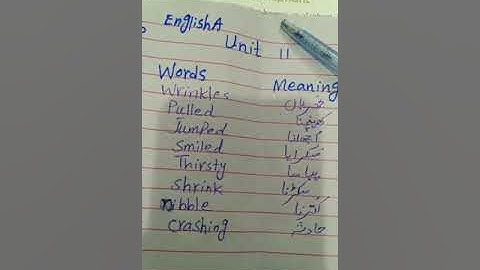 English A
Unit 11
Words Meaning
Wrinkles جھریاں
Pulled کھینچنا
Jumped اچھلنا
Smiled مسکرایا
Thirsty پیاسا
shrink سکڑنا
nibble کترنا
crashing حادثہ